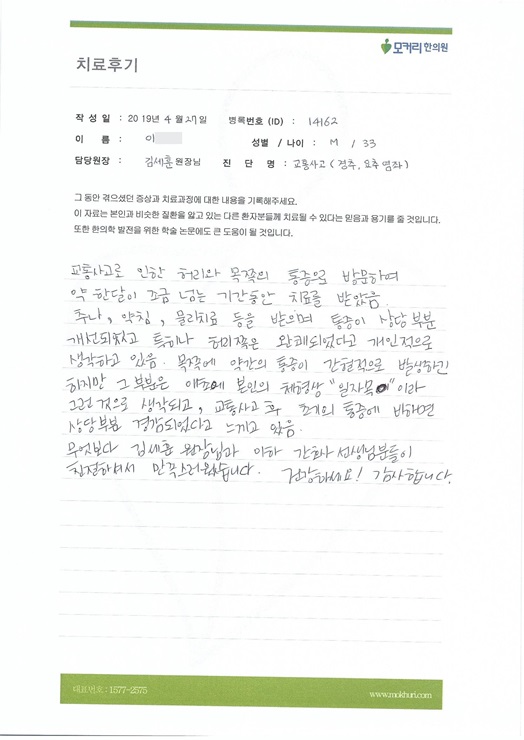 모커리한의원
치료후기
작 성 일 : 2019년 4월 27일 병록번호 (ID) : 14162
이 름 : 이 성별 / 나이 : M / 33
담당원장 : 김세훈 원장님 진 단 명 : 교통사고 (경추, 요추 염좌)
그 동안 겪으셨던 증상과 치료과정에 대한 내용을 기록해주세요.
이 자료는 본인과 비슷한 질환을 앓고 있는 다른 환자분들께 치료될 수 있다는 믿음과 용기를 줄 것입니다.
또한 한의학 발전을 위한 학술 논문에도 큰 도움이 될 것입니다.
교통사고로 인한 허리와 목쪽의 통증으로 방문하여
약 한달이 조금 넘는 기간동안 치료를 받았음.
추나, 약침, 물리치료 등을 받으며 통증이 상당 부분
개선되었고 특히나 허리쪽은 완쾌되었다고 개인적으로
생각하고 있음. 목쪽에 약간의 통증이 간헐적으로 발생하긴
하지만 그 부분은 애초에 본인의 체형상 "일자목"이라
그런 것으로 생각되고, 교통사고 후 초기의 통증에 비하면
상당부분 경감되었다고 느끼고 있음.
무엇보다 김세훈 원장님과 이하 간호사 선생님분들이
친절하셔서 만족스러웠습니다. 건강하세요! 감사합니다.
대표번호 : 1577-2575 www.mokhuri.com